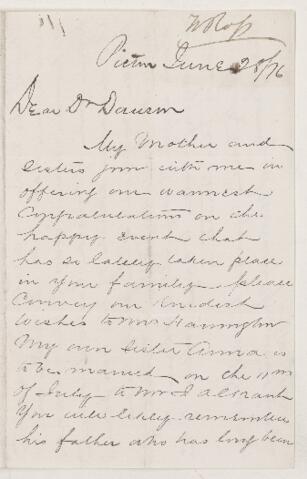 W Ross
Pictou June 28/76
Dear Dr Dawson
My Mother and
Sisters join with me in
offering our warmest
Congratulations on the
happy event that
has so lately taken place
in your family. please
Convey our kindest
wishes to Mrs Harrington
My own sister Anna is
to be married on the 11th
of July to Mr J A Grant
You will likely remember
his father who has long been